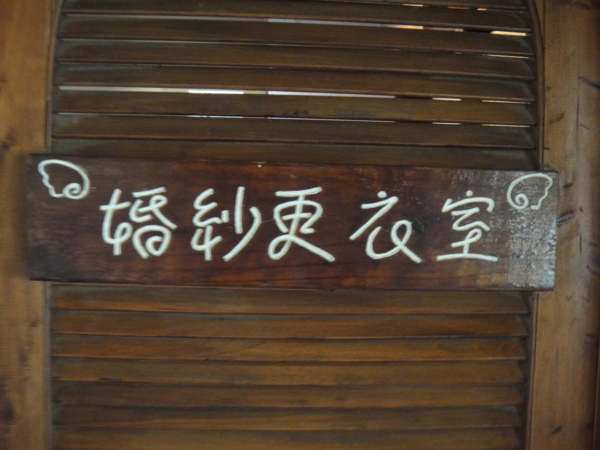 婚紗更衣室